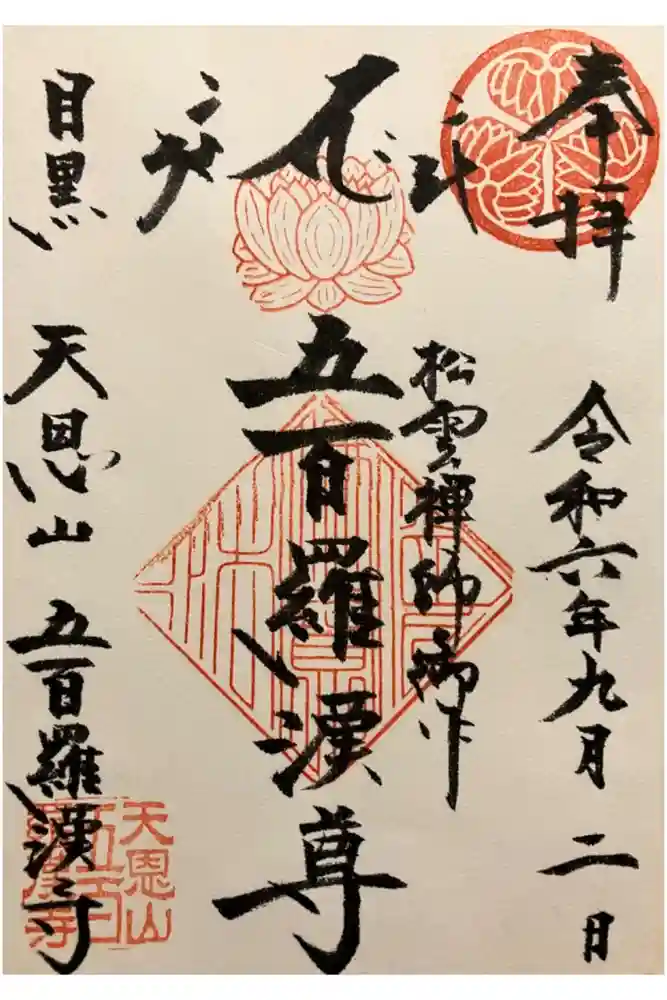 奉拝
令和六年九月二日
松雲禅師御作
五百羅漢尊
目黒 天恩山 五百羅漢寺
天恩山
五百
羅漢寺